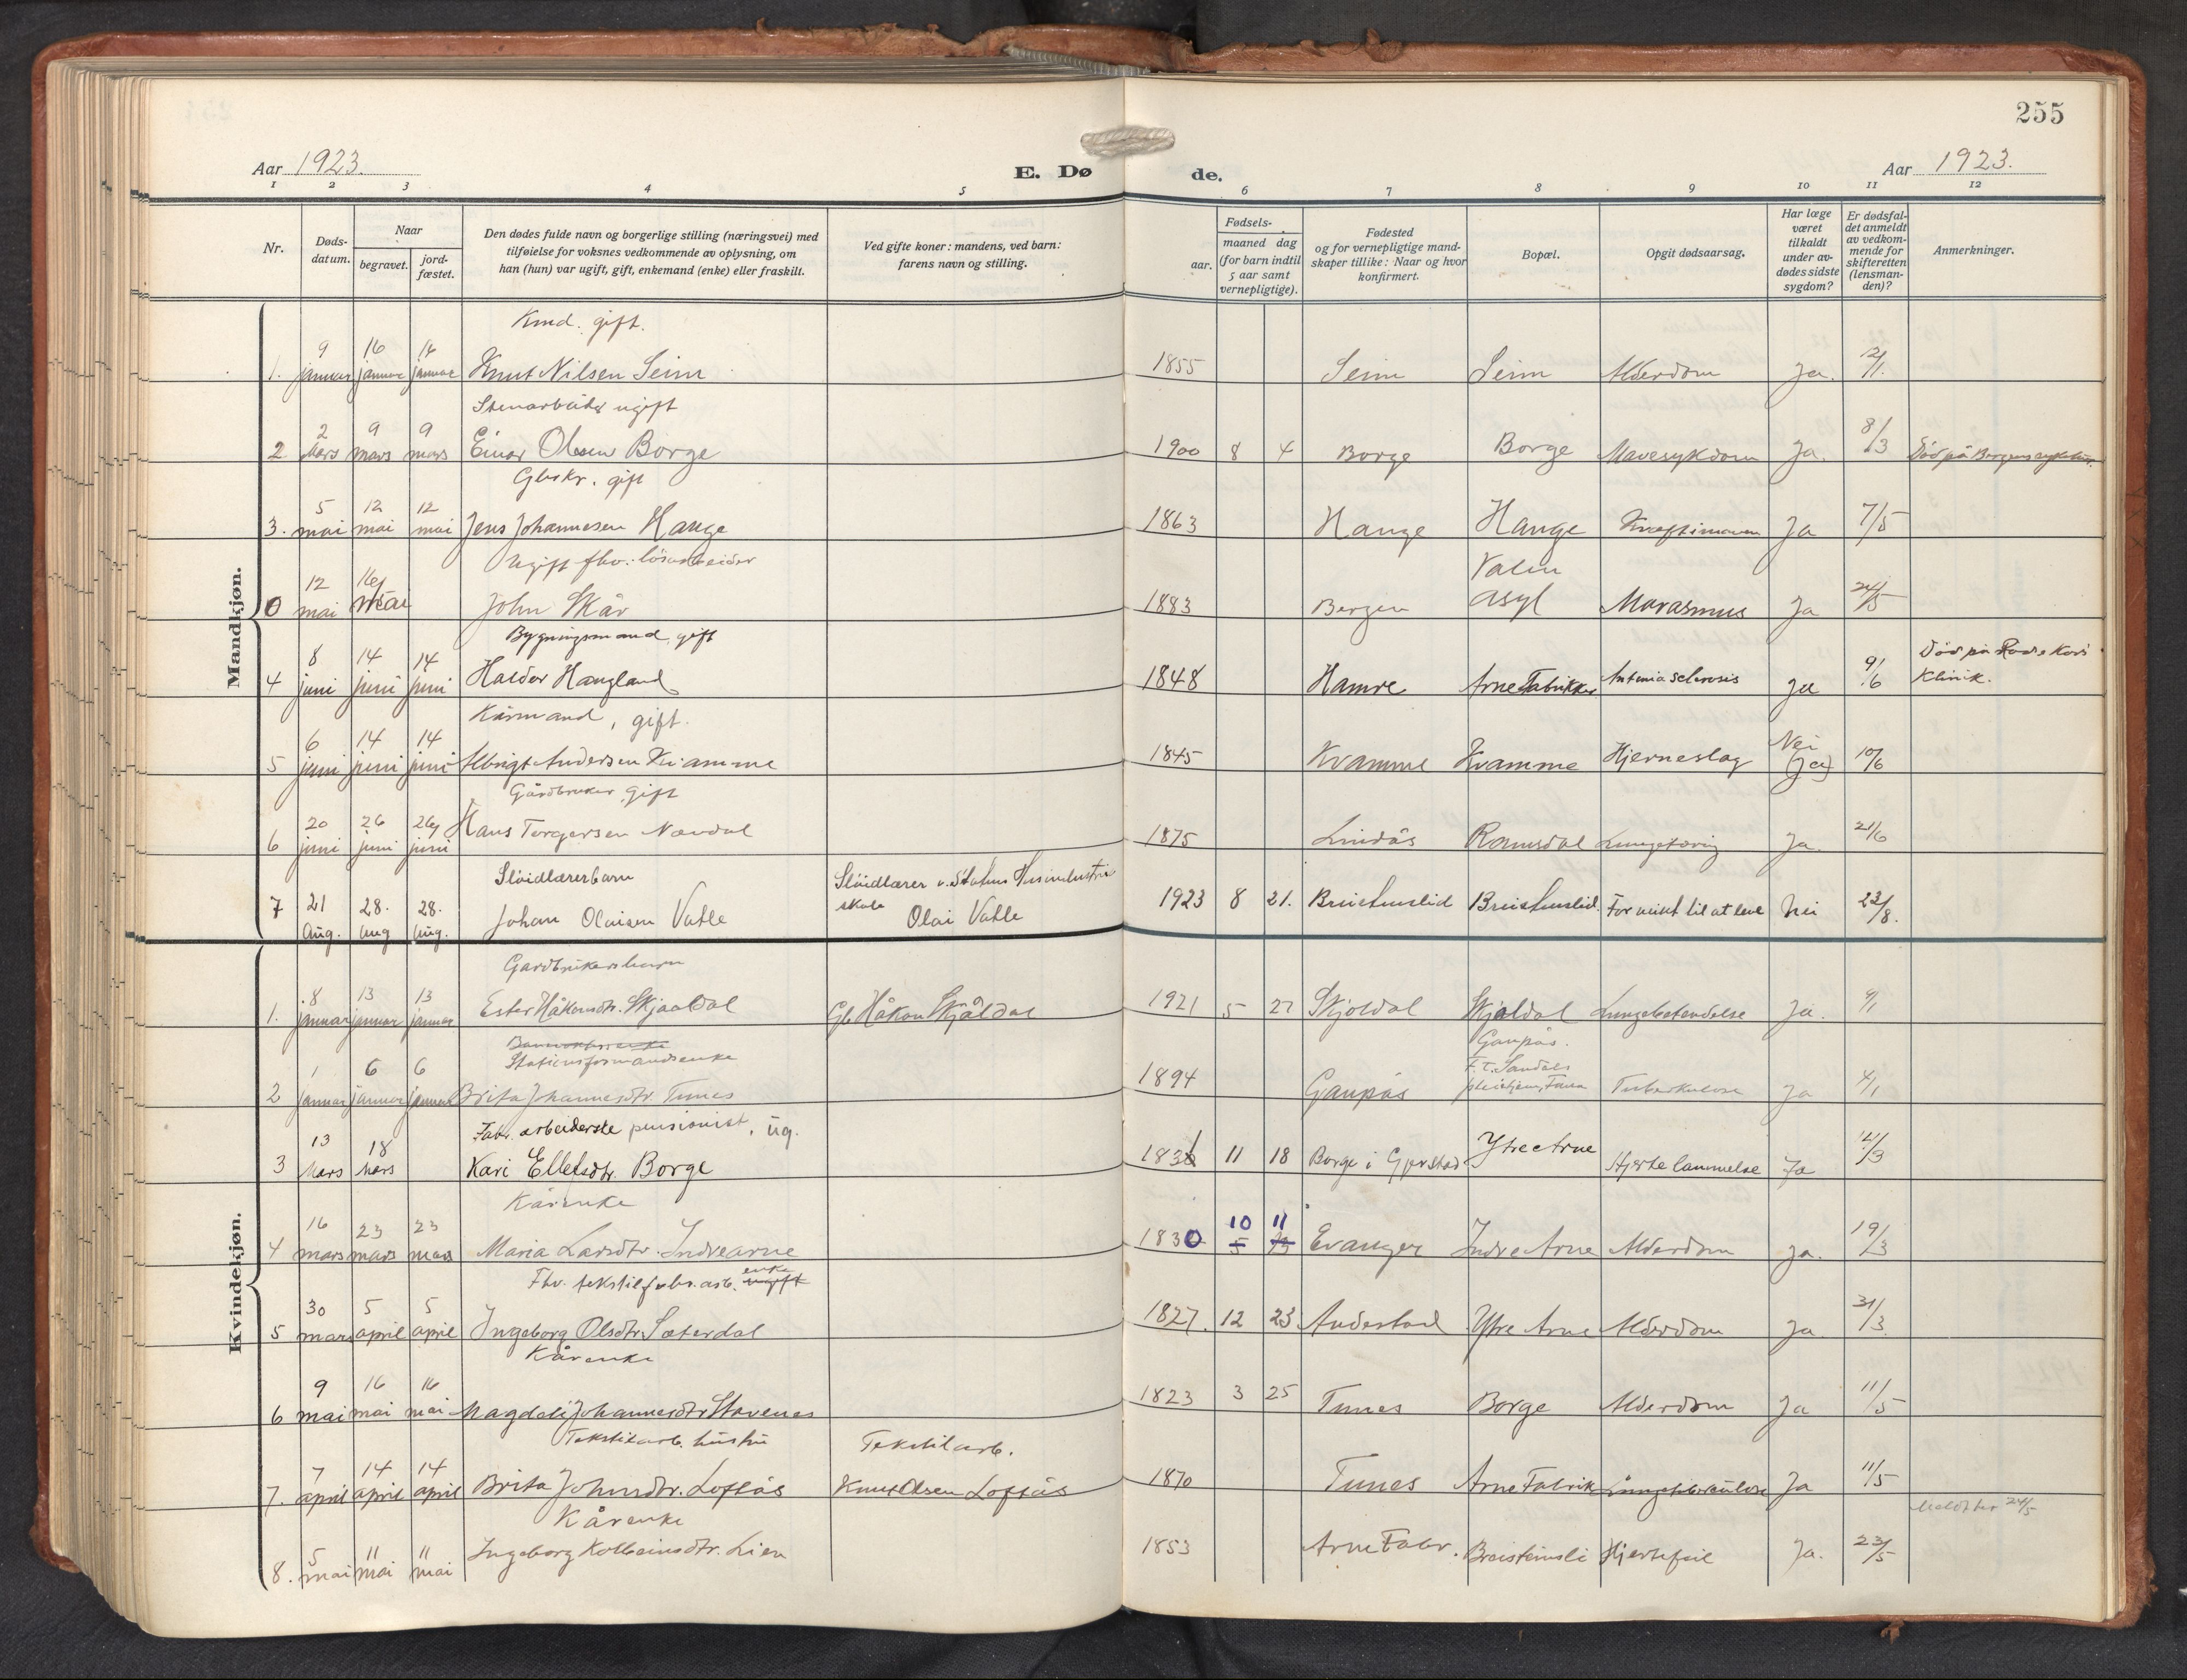 255
Aar 1923.
E. Dø de.
Aar 1923.
1 2 3 4 5 6 7 8 9 10 11 12
Nr.
Døds-datum.
Naar
begravet.
jord-fæstet.
Den dødes fulde navn og borgerlige stilling (næringsvei) med
tilføielse for voksnes vedkommende av oplysning, om
han (hun) var ugift, gift, enkemand (enke) eller fraskilt.
Ved gifte koner: mandens, ved barn:
farens navn og stilling.
Fødsels-
aar.
maaned dag
(for barn indtil
5 aar samt
vernepligtige).
Fødested
og for vernepligtige mand-
skaper tillike: Naar og hvor
konfirmert.
Bopæl.
Opgit dødsaarsag.
Har læge
været
tilkaldt
under av-
dødes sidste
sygdom?
Er dødsfal-
det anmeldt
av vedkom-
mende for
skifteretten
(lensman-
den)?
Anmerkninger.
Mandkjøn.
Kmd. gift.
1. 9 januar 16 januar 16 januar Knut Nilsen Seim 1855 Seim Seim Alderdom Ja. 12/1.
Stenarbeider ugift
2 2 Mars 9 mars 9 mars Einar Olsen Borge 1900 8 4 Borge Borge Mavesykdom Ja. 8/3 Död på Bergens sykehus.
Gbrkr. gift
3. 5 mai 12 mai 12 mai Jens Johannesen Hauge 1863 Hauge Hauge Kræft i maven Ja 7/5
Ugift fhv. lösarbeider
0 12 mai 16 mai John Skår 1883 Bergen Valen asyl Marasmus Ja 24/5
Bygningsmand, gift
4 8 juni 14 juni 14 juni Haldor Haugland 1848 Hamre Arne Fabrikker sclerosis Ja 9/6 Död på Røde Kors Klinik.
Kårmand, gift.
5 6 juni 14 juni 14 juni Andersen Kvamme 1845 Kvamme Kvamme Hjerneslag Nei (ja) 10/6
Gårdbruker, gift
6 20 juni 26 juni 26 juni Hans Torgersen 1875 Lindås Romsdal Lungetæring Ja. 21/6
Slöidlærerbarn
7 21 Aug. 28. Aug 28. Aug. Johan Olaisen Vatle Slöidlærer v. Statens Husindustri skole Olai Vatle 1923 8 21. Breisteinslid Breisteinslid. For svikt til at leve Nei 22/8.
Kvindekjøn.
Gardbrukersbarn
1. 8 januar 13 januar 13 januar Ester Håkonsdtr. Skjaaldal Gb Håkon Skjåldal 1921 5 27 Skjoldal Skjaldal Lungebetendelse Ja. 9/1
Stationsformandsenke
2 1 januar 6 januar 6 januar Brita Johannesdtr. Tunes 1894 Gaupås Gaupås. F.t. Sandals pleiehjem, Fana Tuberkulose Ja 4/1
Fabr. arbeiderske pensionist, ug.
3 13 Mars 18 Mars Kari Ellefsdtr. Borge 1831 11 18 Borge i Gjerstad Ytre Arne Hjertelammelse Ja 14/3
Kårenke
4 16 mars 23 mars 23 mars Maria Larsdtr. Indrearne 1830 10 11 Evanger Indre Arne Alderdom Ja. 19/3
Fhv. tekstilfabr.arb. enke ugift
5 30 mars 5 april 5 april Ingeborg Olsdtr. Sæterdal 1827. 12 23 Audestad Ytre Arne Alderdom Ja 31/3
Kårenke
6 9 mai 16 mai 16 mai Magdeli Johannesdtr. Stavenes 1823 3 25 Tunes Borge Alderdom Ja 11/5
Tekstilarb. hustru
7. 7 april 14 april 14 april Brita Johnsdtr. Loftås Tekstilarb. Knut Olsen Loftås 1870 Tunes Arne Fabrik Lungetuberculose Ja 11/5
Kårenke
8. 5 mai 11 mai 11 mai Ingeborg Kolbeinsdtr. Lien 1853 Arne Fabr. Breisteinsli Hjertefeil Ja. 23/5 Meldt her 24/5